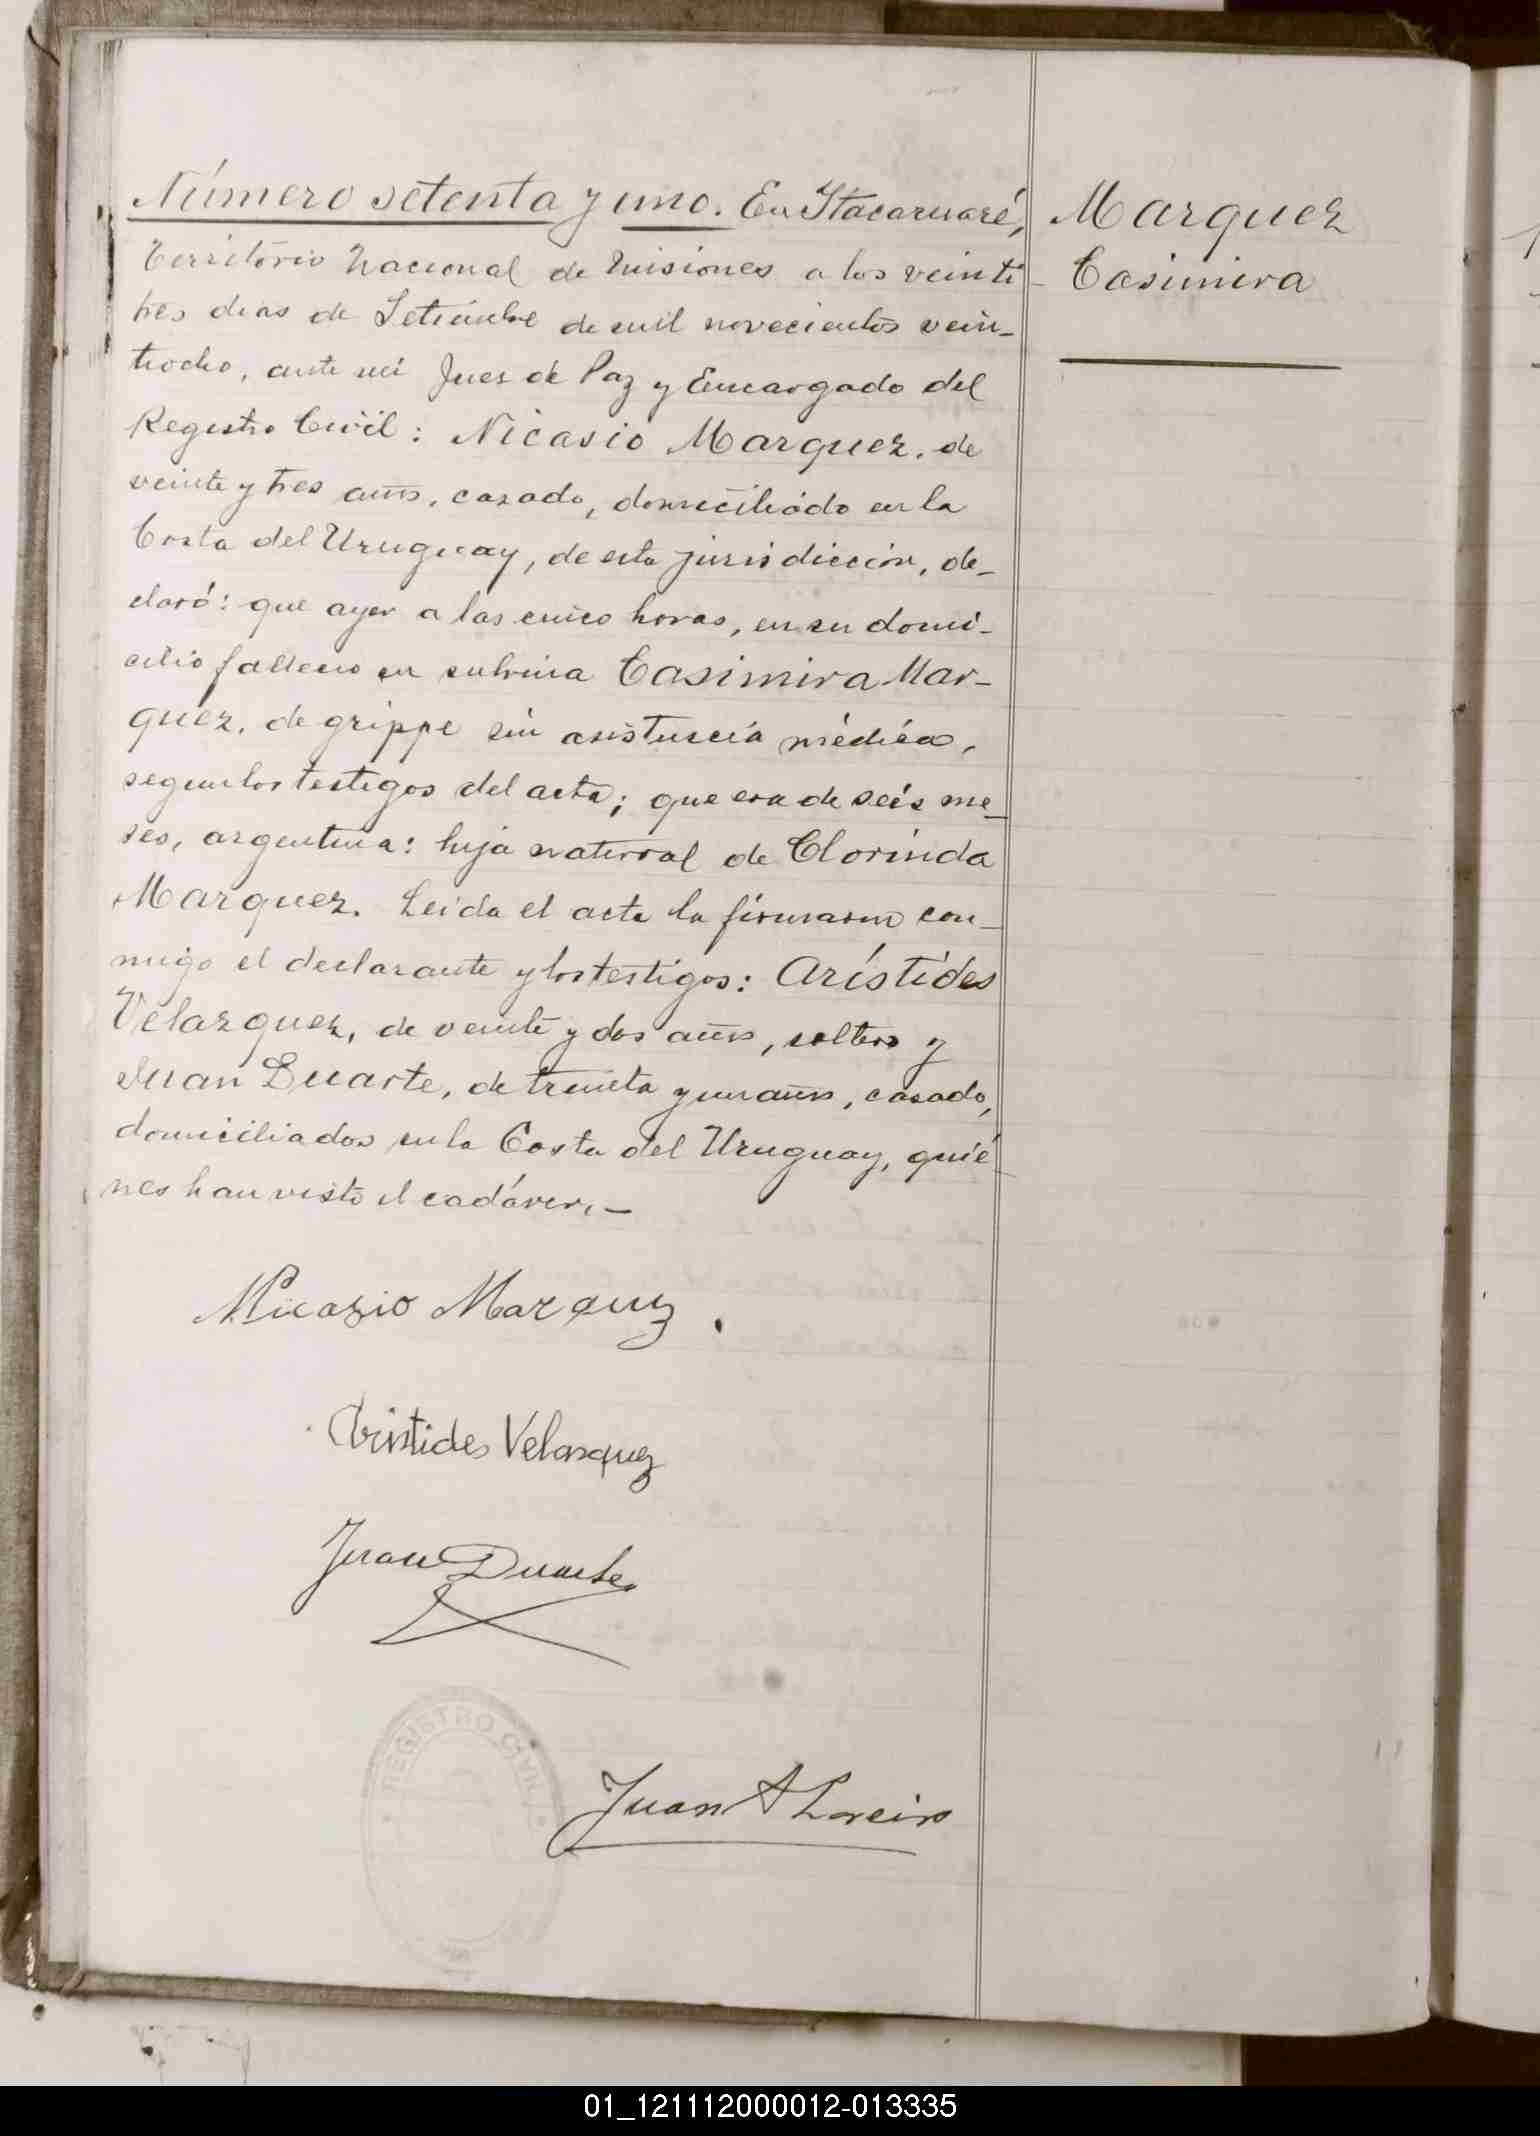 Número setenta y uno. En Itacaruaré,
Territorio Nacional de Misiones a los veinti
tres dias de Setiembre de mil novecientos vein-
tiocho, ante mi Juez de Paz y Encargado del
Registro Civil: Nicasio Marquez, de
veinte y tres años, casado, domiciliado en la
Costa del Uruguay, de esta jurisdicción, de-
claró: que ayer a las cinco horas, en su domi-
cilio fallecio su sobrina Casimira Mar-
quez, de grippe sin asistencia médica,
segun los testigos del acta; que era de seis me-
ses, argentina: hija natural de Clorinda
Marquez. Leida el acta la firmaron con-
migo el declarante y los testigos: Arístides
Velazquez, de veinte y dos años, soltero y
Juan Duarte, de treinta y un años, casado,
domiciliados en la Costa del Uruguay, quié-
nes han visto el cadáver.-
Marquez
Casimira
Nicazio Marquez.
Aristides Velasquez
Juan Duarte
REGISTRO CIVIL
Juan A
01_121112000012-013335